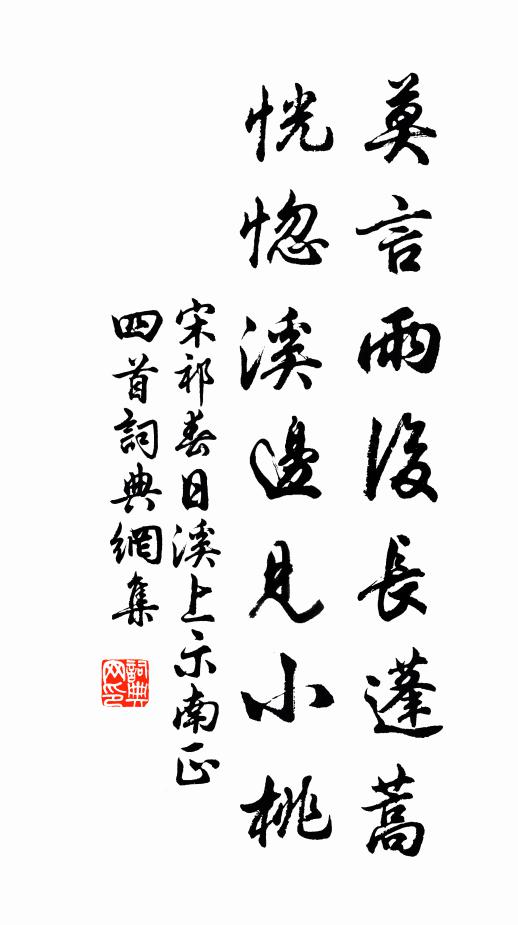 莫言雨後長蓬蒿
恍惚溪邊見小桃
宋祁春日溪上示南正
四首詞典網集
詞典网印